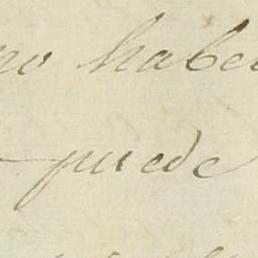 no haber
puede